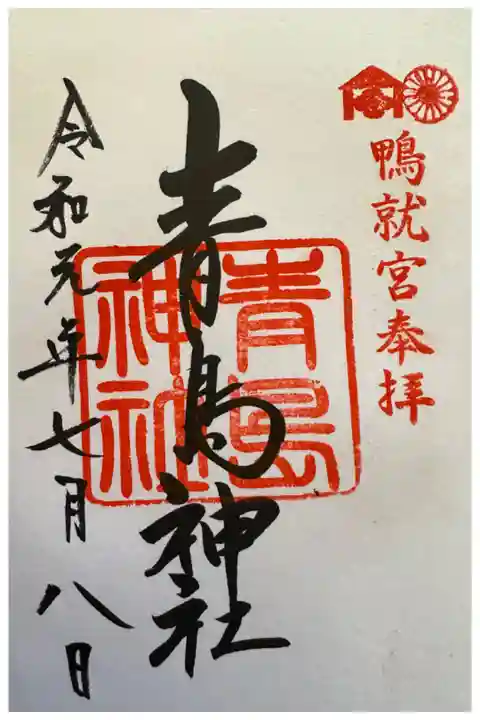 鴨就宮奉拝
青島神社
青島神社
令和元年七月八日